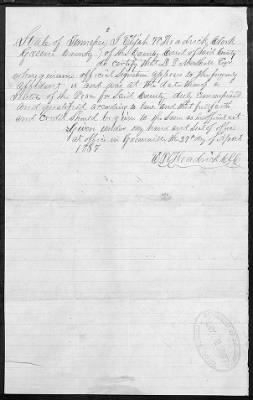 State of Tennessee } I Elijah W Headrick Clerk
Greene County } of the County Court of said County
do certify that
whose genuine official Signature appears to the foregoing
affidavit is and was at the date thereof
of the Peace for Said County duly commissioned
and qualified according to law and that full faith
and Credit Should be given to the Same as Such
Given under my hand and Seal of office
at office in Greeneville the 29th day of
1887
Headrick Clk